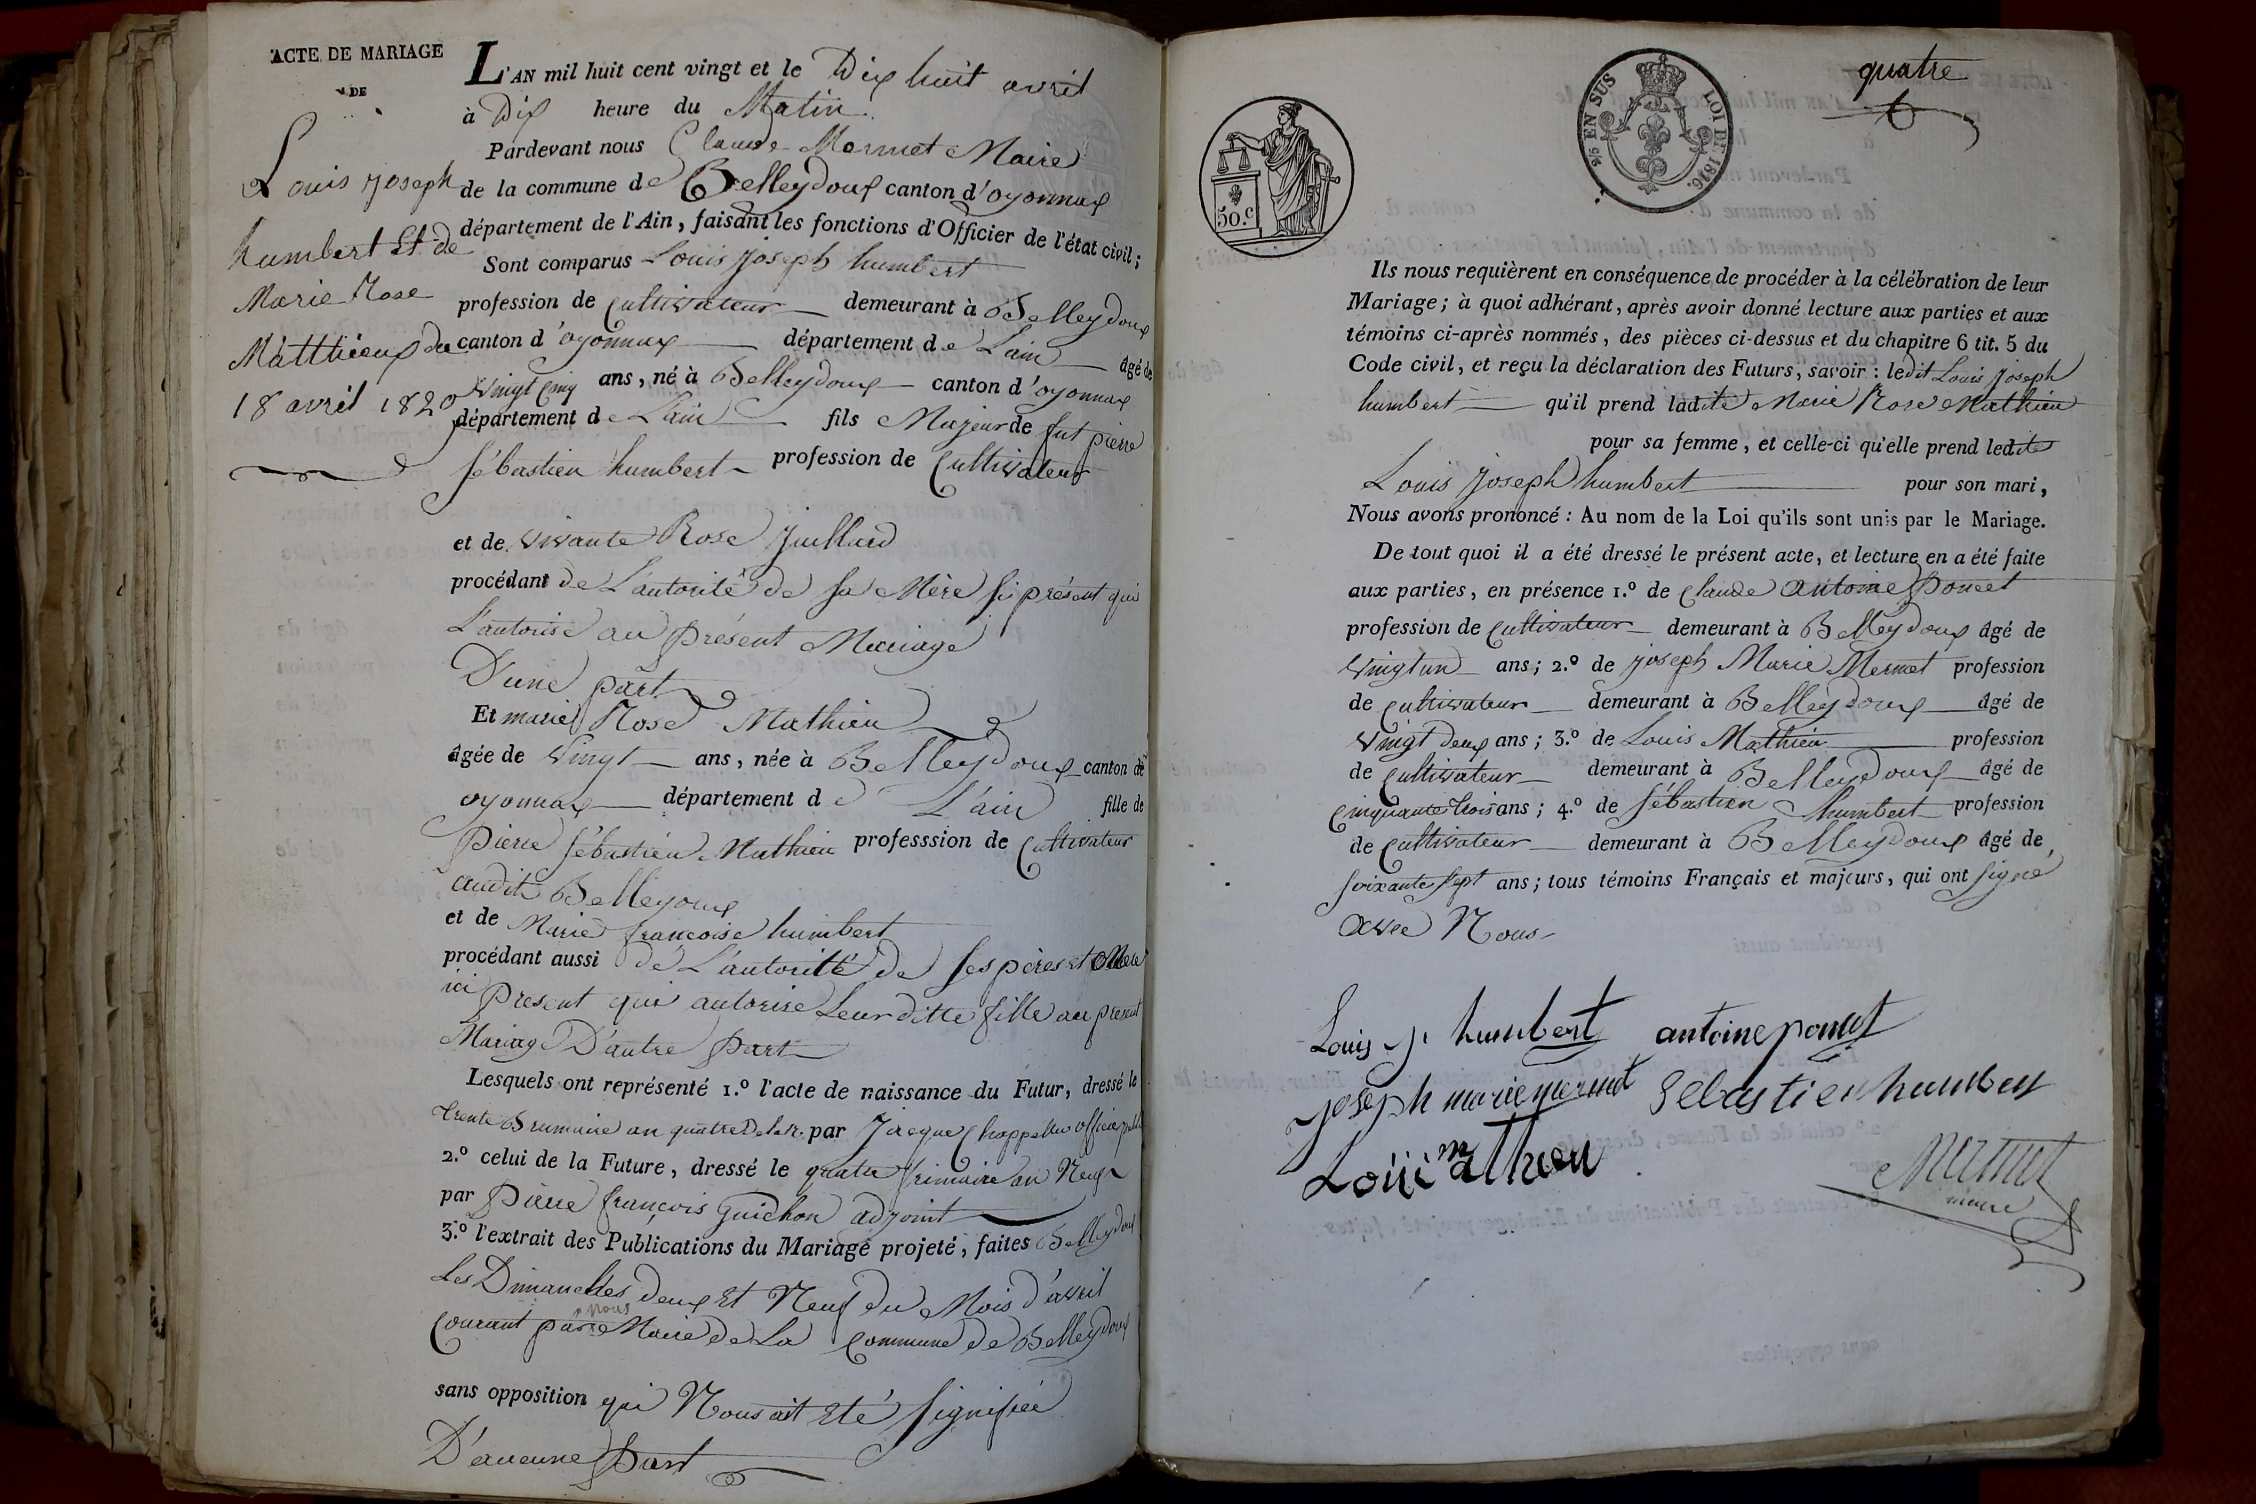 ACTE DE MARIAGE
DE
Louis joseph
humbert Et de
Marie Rose
Matthieux du
18 avril 1820
L'AN mil huit cent vingt et le Dix huit avril
à Dix heure du Matin
Pardevant nous Claude Mermet Maire
de la commune de Belleydoux canton d'oyonnax
département de l'Ain, faisant les fonctions d'Officier de l'état civil;
Sont comparus Louis joseph humbert
profession de Cultivateur demeurant à Belleydoux
canton d'oyonnax département de Lain âgé de
vingt cinq ans, né à Belleydoux canton d'oyonnax
département de Lain fils Majeur de fut pierre
sébastien humbert profession de Cultivateur
et de vivante Rose Juillard
procédant de L'autorité de sa Mère si présent qui
L'autorise au présent Mariage
D'une part
Et marie Rose Mathieu
âgée de vingt ans, née à Belleydoux canton de
oyonnax département de L'ain fille de
Pierre sébastien Mathieu professsion de Cultivateur
audit Belleyoux
et de Marie francoise humbert
procédant aussi de L'autorité de ses pères et Mère
ici present qui autorise Leur ditte fille au présent
Mariage D'autre part
Lesquels ont représenté 1.º l'acte de naissance du Futur, dressé le
trente Brumaire an quatre De la r. par Jacque Chappellu officie publi
2.º celui de la Future, dressé le quatre frimaire an Neuf
par Pierre françois Guichon adjoint
3.º l'extrait des Publications du Mariage projeté, faites Belleydoux
Les Dimanches deux Et Neuf du Mois d'avril
nous
Courant par Maire de La Commune de Belleydoux
sans opposition qui Nous ait Eté signifiée
D'aucune part
quatre
5/6 EN SUS LOI DE 1816.
50.c
Ils nous requièrent en conséquence de procéder à la célébration de leur
Mariage; à quoi adhérant, après avoir donné lecture aux parties et aux
témoins ci-après nommés, des pièces ci-dessus et du chapitre 6 tit. 5 du
Code civil, et reçu la déclaration des Futurs, savoir: ledit Louis Joseph
humbert qu'il prend ladite Marie Rose Mathieu
pour sa femme, et celle-ci qu'elle prend ledite
Louis joseph humbert pour son mari,
Nous avons prononcé: Au nom de la Loi qu'ils sont unis par le Mariage.
De tout quoi il a été dressé le présent acte, et lecture en a été faite
aux parties, en présence 1.º de Claude Antoine Poncet
profession de Cultivateur demeurant à Belleydoux âgé de
vingt un ans; 2.º de joseph Marie Mermet profession
de Cultivateur demeurant à Belleydoux âgé de
vingt deux ans; 3.º de Louis Mathieu profession
de Cultivateur demeurant à Belleydoux âgé de
Cinquante trois ans; 4.º de sébastien humbert profession
de Cultivateur demeurant à Belleydoux âgé de
soixante sept ans; tous témoins Français et majeurs, qui ont signé
avec Nous
Louis j. humbert antoine poncet
joseph marie mermet Sebastien humbert
Loüi mathieu
Mermet
maire